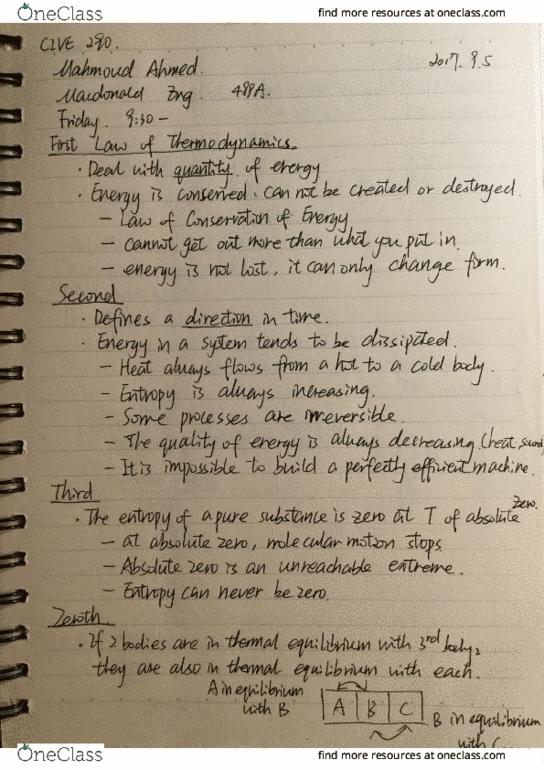 OneClass
find more resources at oneclass.com
CIVE 290.
Mahmoud Ahmed. 2017. 9. 5
Macdonald Eng. 489A.
Friday. 9:30 -
First Law of Thermodynamics.
· Deal with quantity of energy
· Energy is conserved : can not be created or destroyed.
- Law of Conservation of Energy
- cannot get out more than what you put in.
- energy is not lost, it can only change form.
Second
· Defines a direction in time.
· Energy in a system tends to be dissipated.
- Heat always flows from a hot to a cold body.
- Entropy is always increasing.
- Some processes are irreversible.
- The quality of energy is always decreasing (heat, sound
- It is impossible to build a perfectly efficient machine.
Third
· The entropy of a pure substance is zero at T of absolute zero.
- at absolute zero, molecular motion stops
- Absolute zero is an unreachable extreme.
- Entropy can never be zero.
Zeroth
· If 2 bodies are in thermal equilibrium with 3rd body,
they are also in thermal equilibrium with each.
A in equilibrium
with B
A B C
B in equilibrium
with C
OneClass
find more resources at oneclass.com